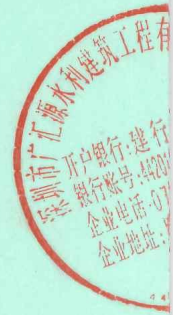 深圳市广汇源水利建筑工程有
开户银行:建行
银行账号:4420
企业电话:07
企业地址:
44